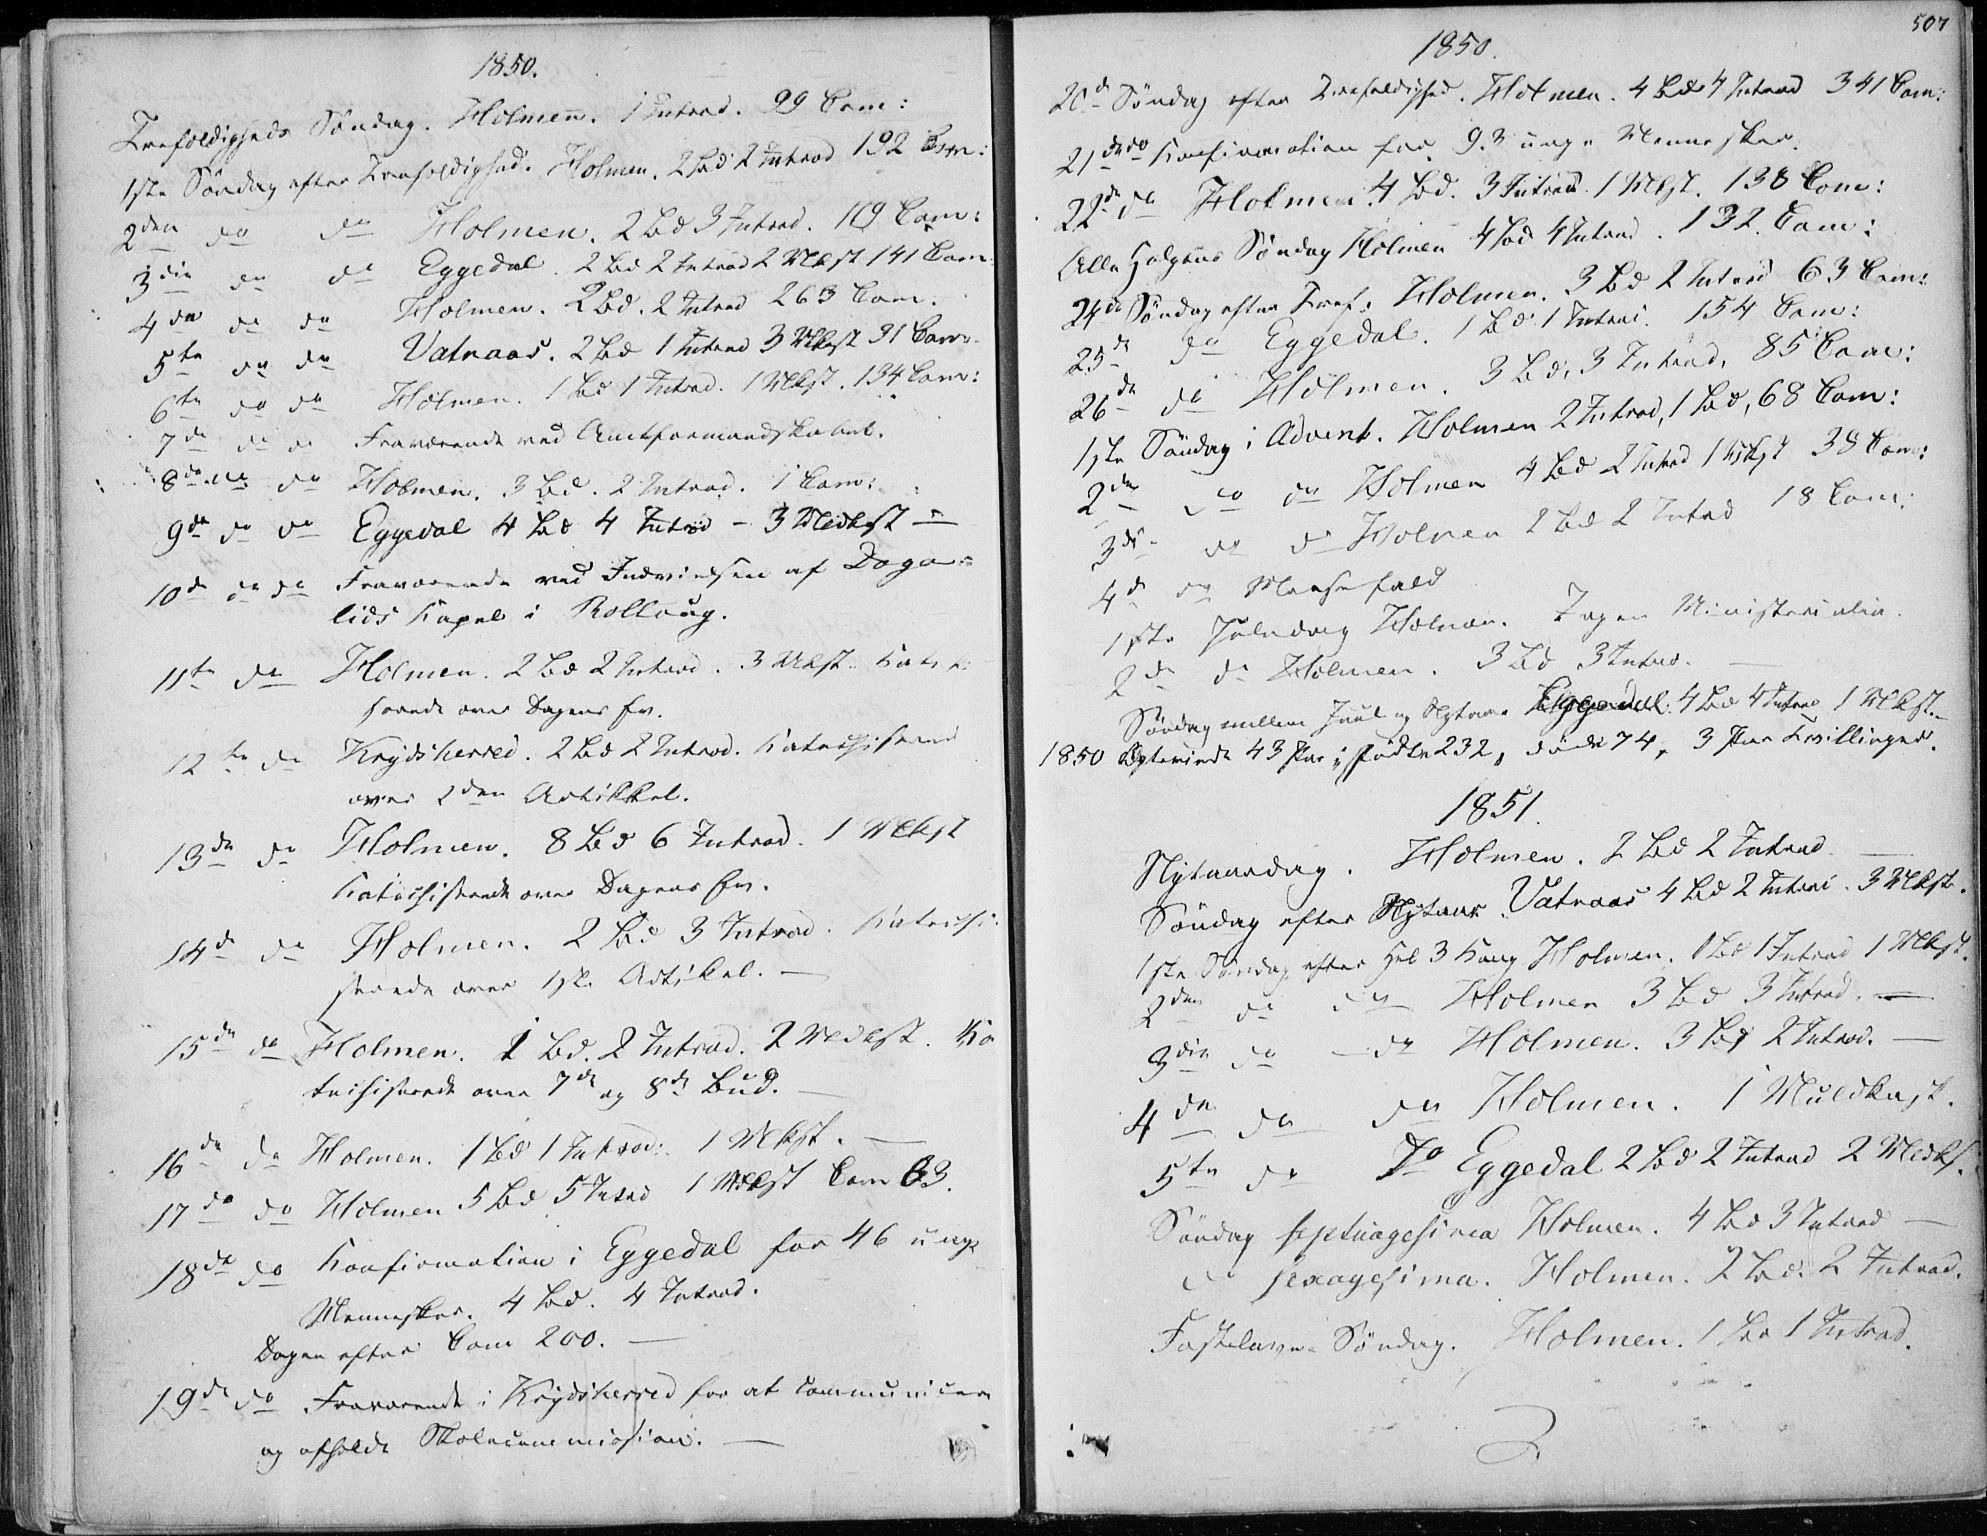 1850.
Trefoldigheds Söndag. Holmen. 1 Introd. 99 Com:
1ste Söndag efter Trefoldighed. Holmen. 2 Bd 2 Introd 192 Com:
2den do do Holmen. 2 Bd 3 Introd. 119 Com:
3die do do Eggedal. 2 Bd 2 Introd 2 Mkst 141 Com
4de do do Holmen. 2 Bd. 2 Introd 263 Com.
5te do do Vatnaas. 2 Bd 1 Introd 3 Mkst 91 Com.
6te do do Holmen. 1 Bd 1 Introd. 1 Mkst. 134 Com:
7de do do Fraværende ved Amtformandskabet.
8de do do Holmen. 3 Bd. 2 Introd. 1 Com:
9de do do Eggedal 4 Bd 4 Introd - 3 Mldkst —
10de do do Fraværende ved Indvielsen af Daga=
lids Kapel i Rolloug.
11te do Holmen. 2 Bd 2 Introd. 3 Mkst. Kateki
serede over Dagens Ev.
12te do Krydsherred. 2 Bd 2 Introd. Katechiserede
over 2den Artikkel.
13de do Holmen. 8 Bd 6 Introd. 1 Mkst
Katechiserede over Dagens Ev.
14de do Holmen. 2 Bd 3 Introd. Katechi:
serede over 1ste Artikel. —
15de do Holmen. 1 Bd. 2 Introd. 2 Mldkst. Ka
techiserede over 7de og 8de Bud. —
16de do Holmen. 1 Bd 1 Introd: 1 Mkst. —
17de do Holmen 5 Bd 5 Introd 1 Mkst Com 63.
18de do Konfirmation i Eggedal for 46 unge
Mennesker. 4 Bd. 4 Introd.
Dagen efter Com 200. —
19de do Fraværende i Krydsherred for at communicere
og afholde Skolecommission. —
507
1850.
20de Söndag efter Trefoldighed. Holmen. 4 Bd 4 Introd 341 Com:
21de do Konfirmation for 93 unge Mennesker.
22de do Holmen. 4 Bd. 3 Introd. 1 Mkst. 138 Com:
Alle Helgens Söndag Holmen 4 Bd 4 Introd. 132. Com:
24de Söndag efter Tref: Holmen. 3 Bd 2 Introd 63 Com:
25de do Eggedal. 1 Bd 1 Introd. 154 Com:
26de do Holmen. 3 Bd. 3 Introd, 85 Com:
1ste Söndag i Advent. Holmen 2 Introd, 1 Bd, 68 Com:
2den do do Holmen 4 Bd 2 Introd 1 Mkst 38 Com:
3die do do Holmen 2 Bd 2 Introd 18 Com:
4de do Messefald
1ste Juledag Holmen. Ingen Ministerialia.
2de do Holmen. 3 Bd 3 Introd. —
Söndag mellem Juul og Nytaar Eggedal 4 Bd 4 Introd 1 Mkst. —
1850 Egteviede 43 Par; Födte 232, döde 74, 3 Par Tvillinger.
1851.
Nytaarsdag. Holmen. 2 Bd 2 Introd —
Söndag efter Nytaar. Vatnaas 4 Bd 2 Introd. 3 Mkst.
1ste Söndag efter Hel 3 Kong Holmen. 1 Bd 1 Introd 1 Mkst.
2den do do Holmen 3 Bd 3 Introd. —
3die do — do Holmen. 3 Bd 2 Introd. —
4de do do Holmen. 1 Muldkast.
5te do Do Eggedal 2 Bd 2 Introd 2 Mldks.
Söndag septuagesima Holmen. 4 Bd 3 Introd —
do sexagesima. Holmen. 2 Bd. 2 Introd.
Fastelavns Söndag. Holmen. 1 Bd 1 Introd.